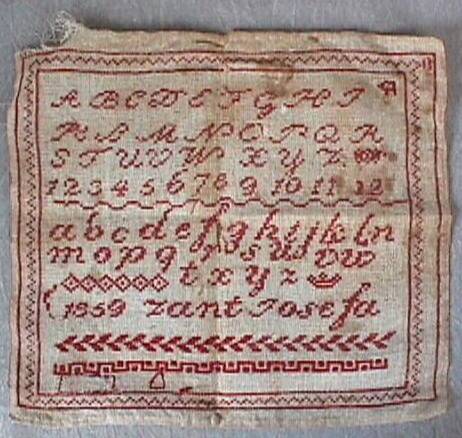 A B C D E F G H I
K L M N O P Q R
S T U V W X Y Z
1 2 3 4 5 6 7 8 9 10 11 12
a b c d e f g h i j k l n
m o p q r s u v w
t x y z
1359 zant Josefa